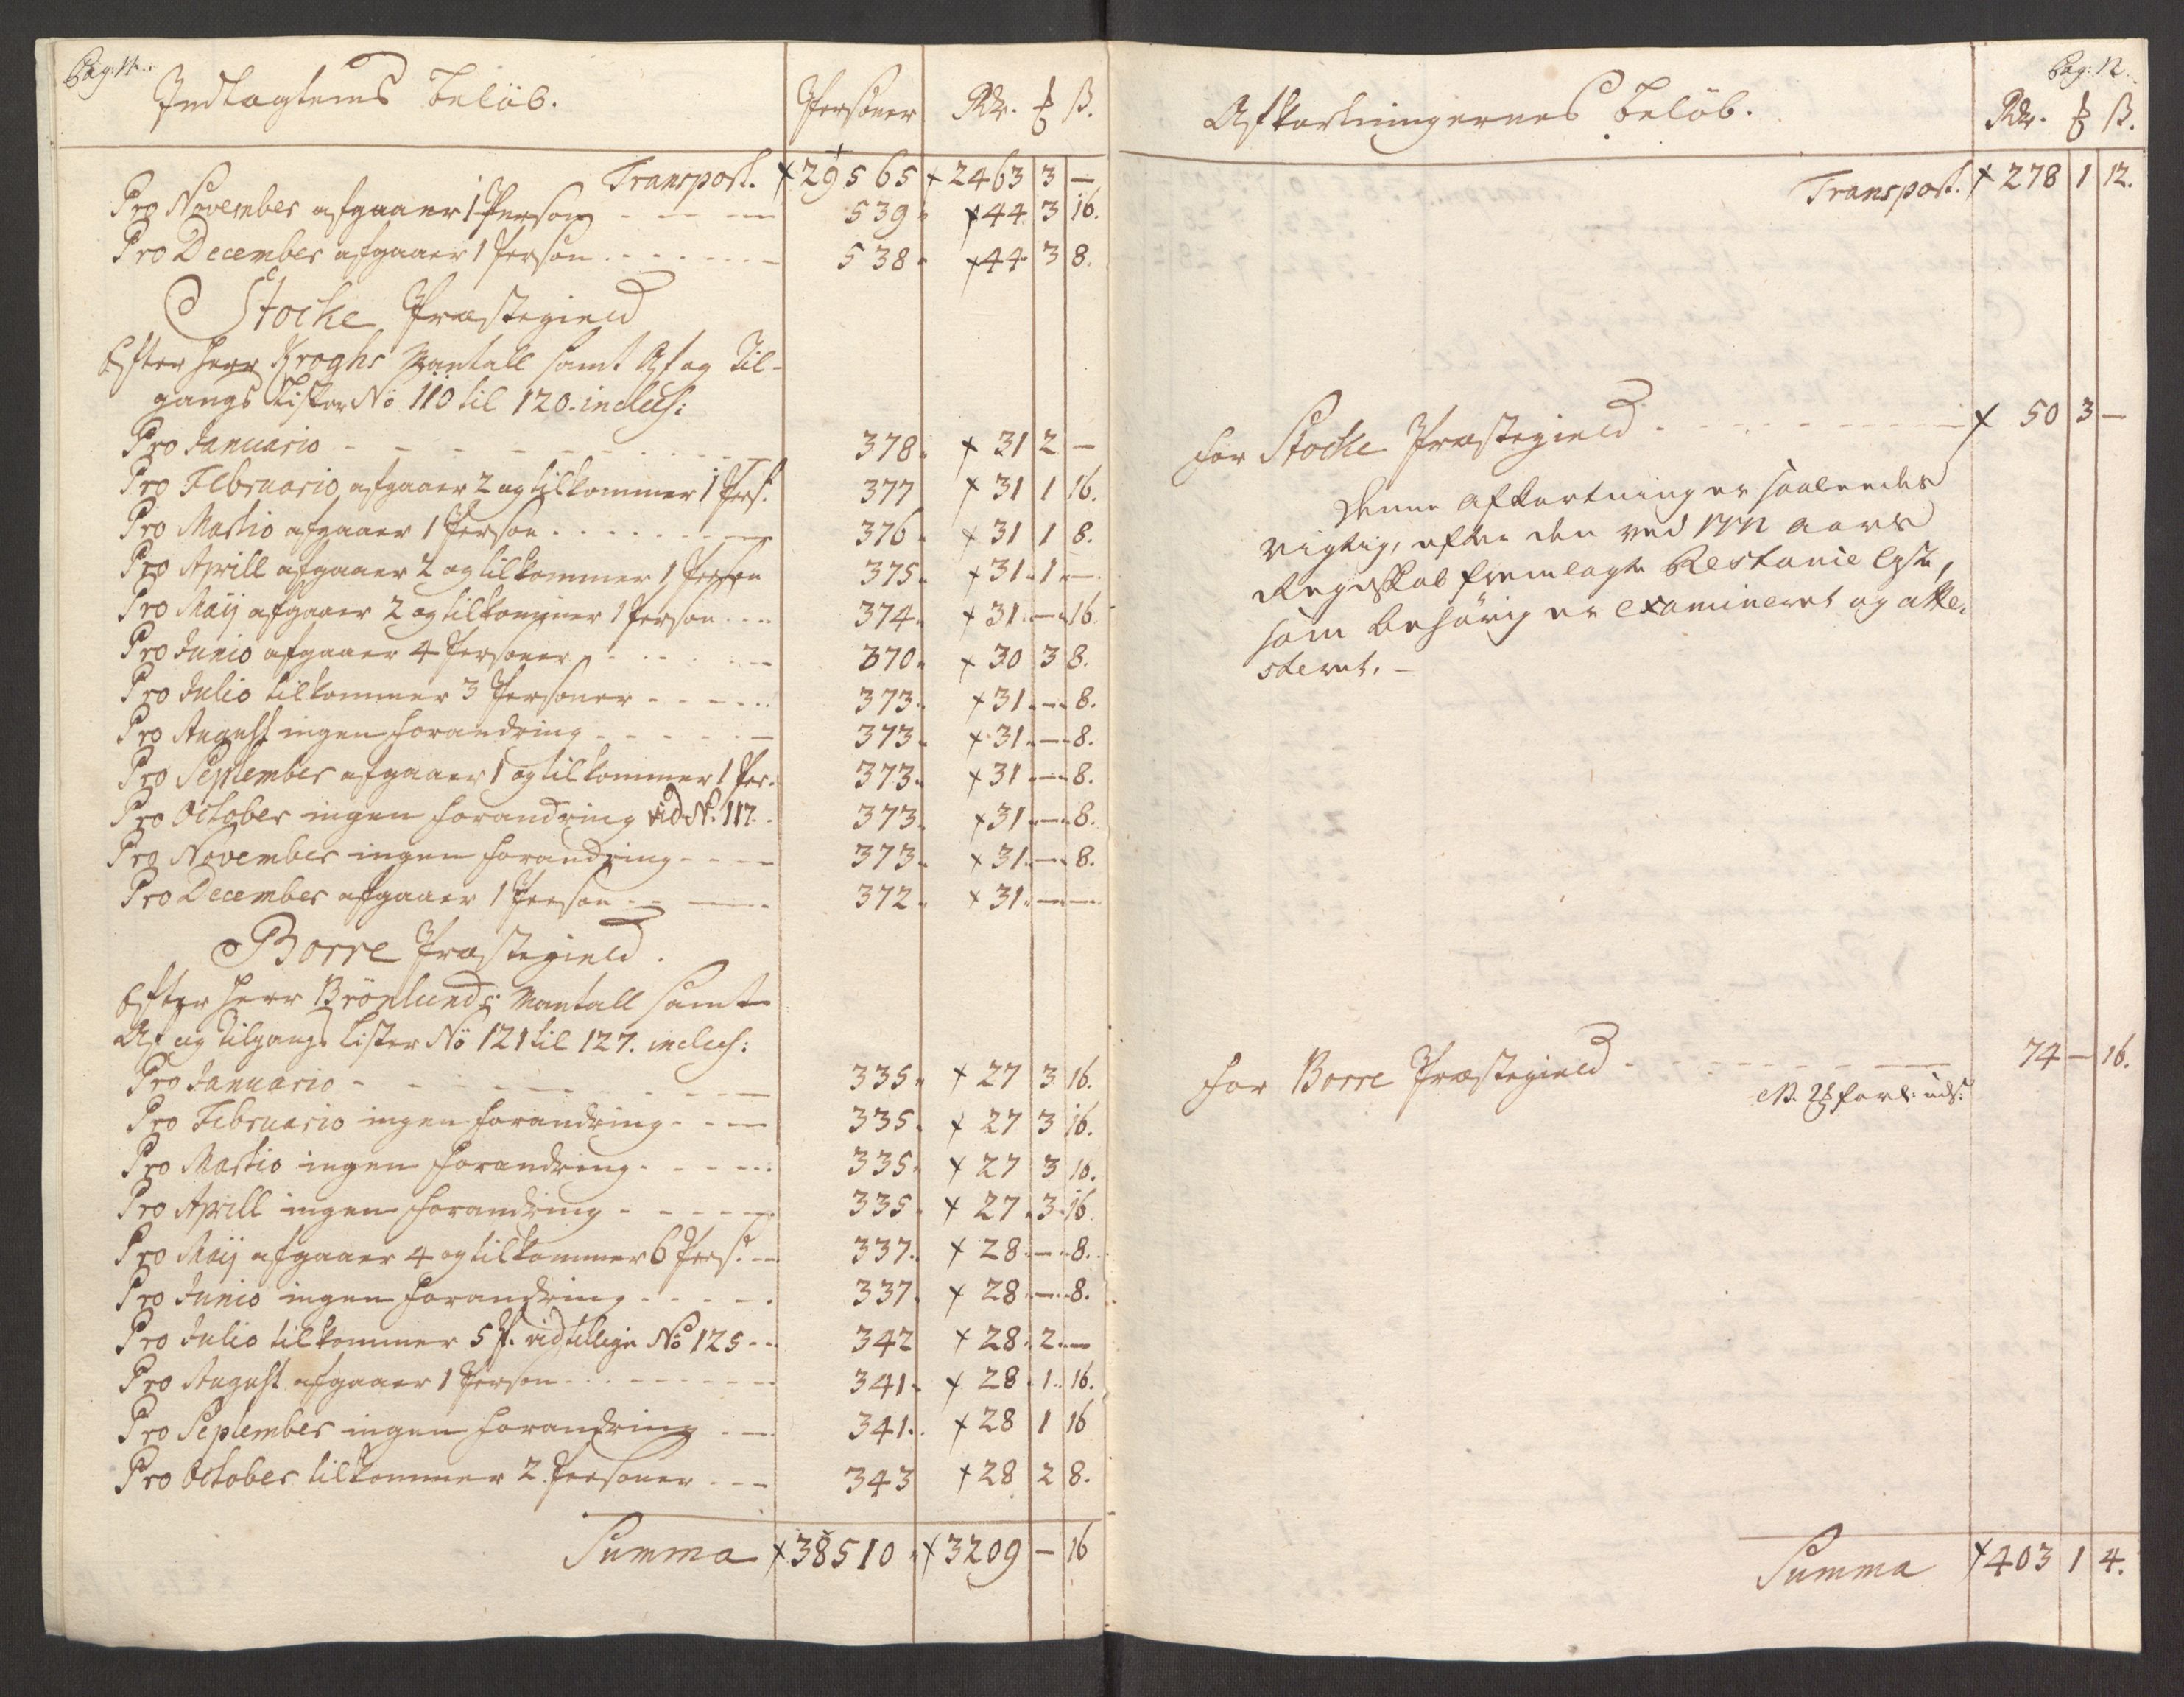 Pag: 11.
Indtagtens beløb. Personer Rdr. ₰ ß.
Transport. 29565 2463 3 —
Pro November afgaaer 1 Person 539 44 3 16.
Pro December afgaaer 1 Person 538 44 3 8.
Stocke Præstegield
Efter Herr Kroghs Mantall samt Af og Til-
gangs Lister No 110 til 120. inclus:
Pro Januario 378 31 2 —
Pro Februario afgaaer 2 og tilkommer 1 Pers: 377 31 1 16.
Pro Martio afgaaer 1 Person 376 31 1 8.
Pro Aprill afgaaer 2 og tilkommer 1 Person 375 31 1 —
Pro Maij afgaaer 2 og tilkommer 1 Person 374 31 — 16
Pro Junio afgaaer 4 Personer 370 30 3 8.
Pro Julio tilkommer 3 Personer 373 31 — 8.
Pro August ingen forandring 373 31 — 8.
Pro September afgaaer 1 og tilkommer 1 Per. 373 31 — 8.
Pro October ingen forandring vid No. 117. 373 31 — 8.
Pro November ingen forandring 373 31 — 8.
Pro December afgaaer 1 Person 372 31 — —
Borre Præstegield.
Efter Herr Brönlunds Mantall samt
Af og Tilgangs Lister No 121 til 127. inclus:
Pro Januario 335 27 3 16.
Pro Februario ingen forandring 335 27 3 16.
Pro Martio ingen forandring 335 27 3 16.
Pro Aprill ingen forandring 335 27 3 16
Pro Maij afgaaer 4 og tilkommer 6 Pers: 337 28 — 8.
Pro Junio ingen forandring 337 28 — 8.
Pro Julio tilkommer 5 P. vid tillige No 125 342 28 2 —
Pro August afgaaer 1 Person 341 28 1 16.
Pro September ingen forandring 341 28 1 16
Pro October tilkommer 2 Personer 343 28 2 8.
Summa 38510 3209 — 16
Pag: 12.
Afkortningernes beløb. Rdr. ₰ ß.
Transport. 278 1 12.
for Stocke Præstegield 50 3 —
Denne afkortning er saaledes
rigtig, efter den ved 1772 aars
Regnskab fremlagte Restance lyste,
som behørig er examineret og atte-
steret. —
for Borre Præstegield 74 — 16.
Summa 403 1 4.